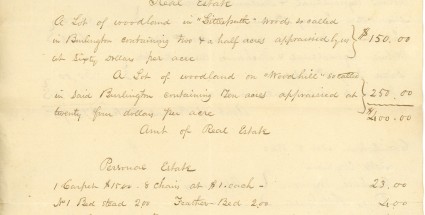 Real Estate
A Lot of woodland in "Littlesmith" woods so called
in Burlington containing two & a half acres appraised by us } $150.00
at Sixty dollars per acre
A Lot of woodland on "Woodhill" so called
in said Burlington containing Ten acres appraised at } 250.00
twenty five dollars per acre $400.00
Amt of Real Estate
Personal Estate
1 Carpet $15.00 - 8 chairs at $1. each - 23.00
No 1 Bed stead 2.00 Feather-Bed 2.00 4.00